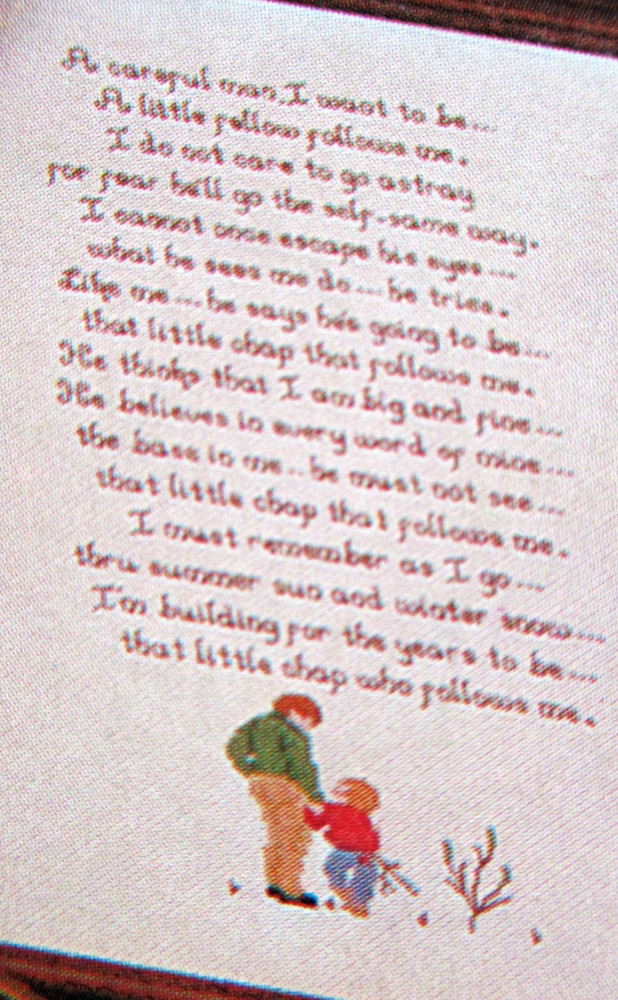 A careful man, I want to be...
A little fellow follows me.
I do not care to go astray
for fear he'll go the self-same way.
I cannot once escape his eyes....
what he sees me do....he tries.
Like me....he says he's going to be....
that little chap that follows me.
He thinks that I am big and fine....
He believes in every word of mine....
the base in me...he must not see....
that little chap that follows me.
I must remember as I go....
thru summer sun and winter snow....
I'm building for the years to be....
that little chap who follows me.